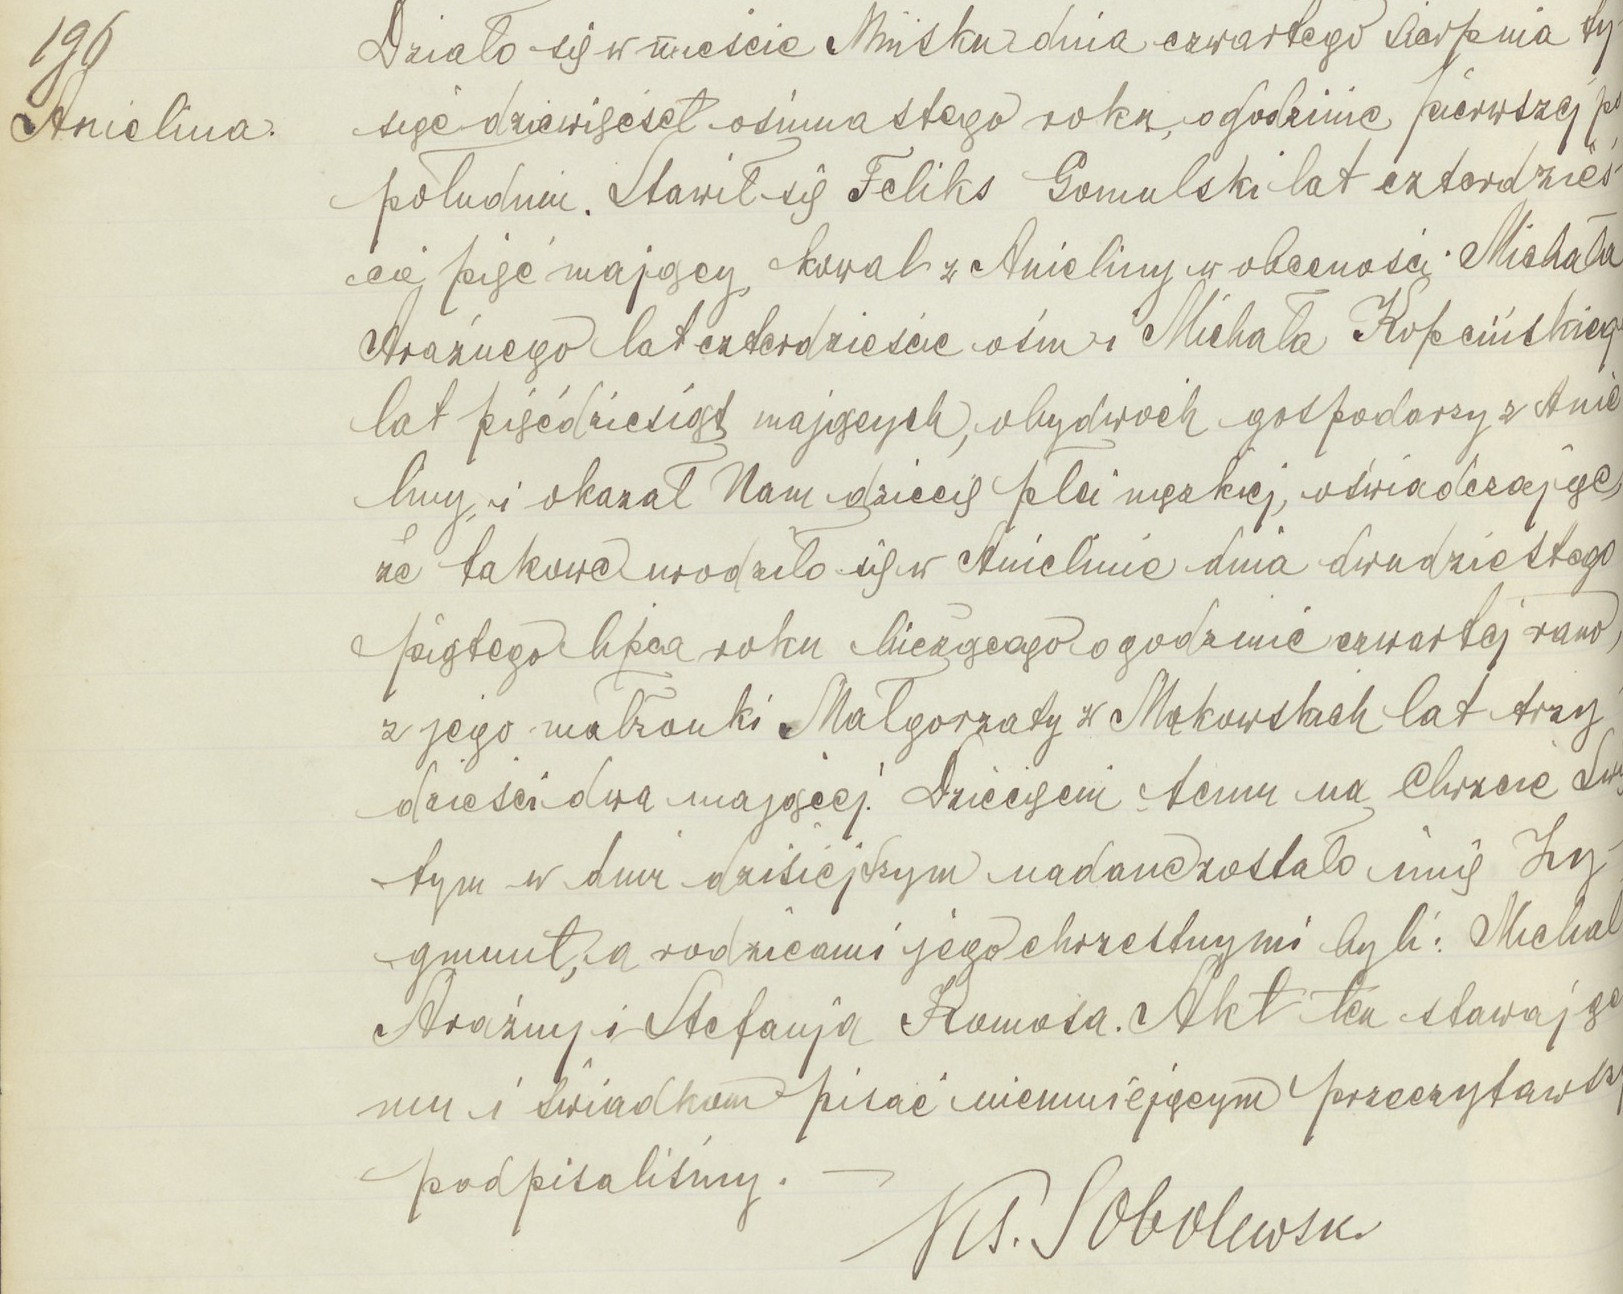 196
Anielina.
Działo się w mieście Mińsku dnia czwartego sierpnia ty-
siąc dziewięćset ośmnastego roku, o godzinie pierwszej po
południu. Stawił się Feliks Gomulski lat czterdzieś-
cie pięć mający kowal z Anieliny w obecności Michała
Arażnego lat czterdzieście ośm i Michała Kopcińskieg
lat pięćdziesiąt mających, obydwóch gospodarzy z Anie
liny, i okazał Nam dziecię płci męzkiej, oświadczając,
że takowe urodziło się w Anielinie dnia dwudziestego
piątego lipca roku bieżącego o godzinie czwartej rano,
z jego małżonki Małgorzaty z Makowskich lat trzy
dzieści dwa mającej. Dziecięciu temu na Chrzcie Swię
tym w dniu dzisiejszym nadane zostało imię Zy-
gmunt, a rodzicami jego chrzestnymi byli: Michał
Arażny i Stefanja Komosa. Akt ten stawając
mu i świadkom pisać nieumiejącym przeczytawszy
podpisaliśmy. —
Ks. Sobolewski